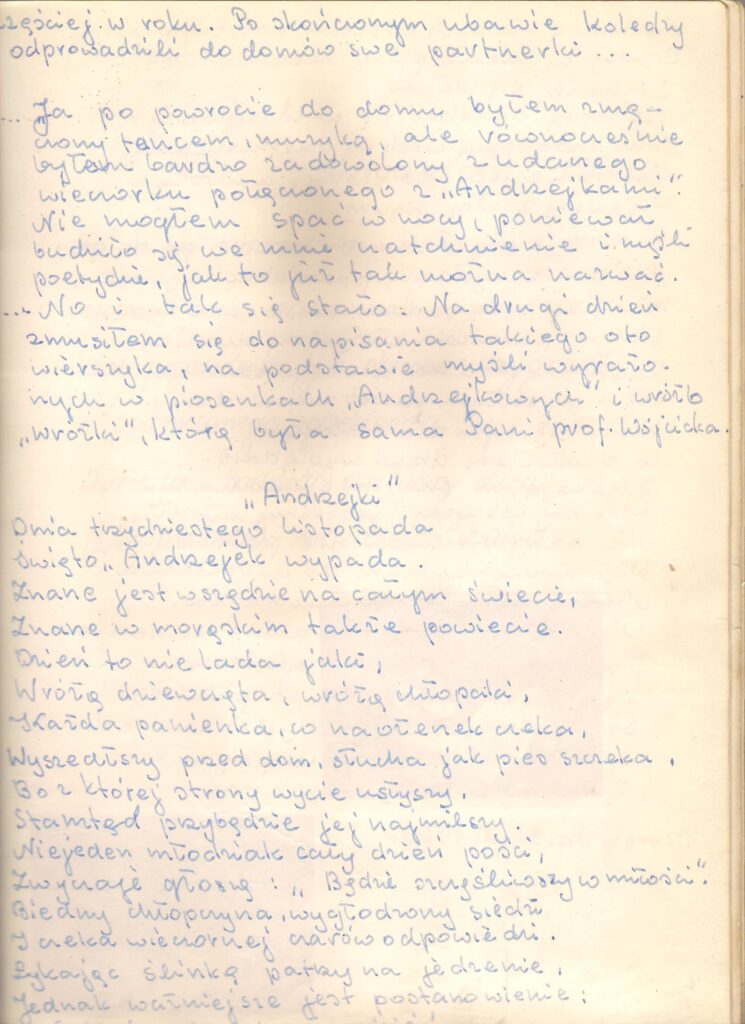 częściej w roku. Po skończonym ubawie koledzy
odprowadzili do domów swe partnerki ...
... Ja po powrocie do domu byłem zmę-
czony tańcem, muzyką, ale równocześnie
byłem bardzo zadowolony z udanego
wieczorku połączonego z „Andrzejkami".
Nie mogłem spać w nocy, ponieważ
budziło się we mnie natchnienie i myśli
poetyckie, jak to już tak można nazwać.
... No i tak się stało. Na drugi dzień
zmusiłem się do napisania takiego oto
wierszyka, na podstawie myśli wyrażo-
nych w piosenkach „Andrzejkowych" i wróżb
„wróżki", którą była sama Pani prof. Wójcicka.
„Andrzejki"
Dnia trzydziestego listopada
Święto „Andrzejek wypada.
Znane jest wszędzie na całym świecie,
Znane w morąskim także powiecie.
Dzień to nie lada jaki,
Wróżą dziewczęta, wróżą chłopaki,
Każda panienka, co na ożenek czeka,
Wyszedłszy przed dom, słucha jak pies szczeka,
Bo z której strony wycie usłyszy,
Stamtąd przybędzie jej najmilszy.
Niejeden młodziak cały dzień pości,
Zwyczaje głoszą: „Będzie szczęśliwszy w miłości".
Biedny chłopczyna, wygłodzony siedzi
I czeka wieczornej czarów odpowiedzi.
Łykając ślinkę patrzy na jedzenie,
Jednak ważniejsze jest postanowienie: